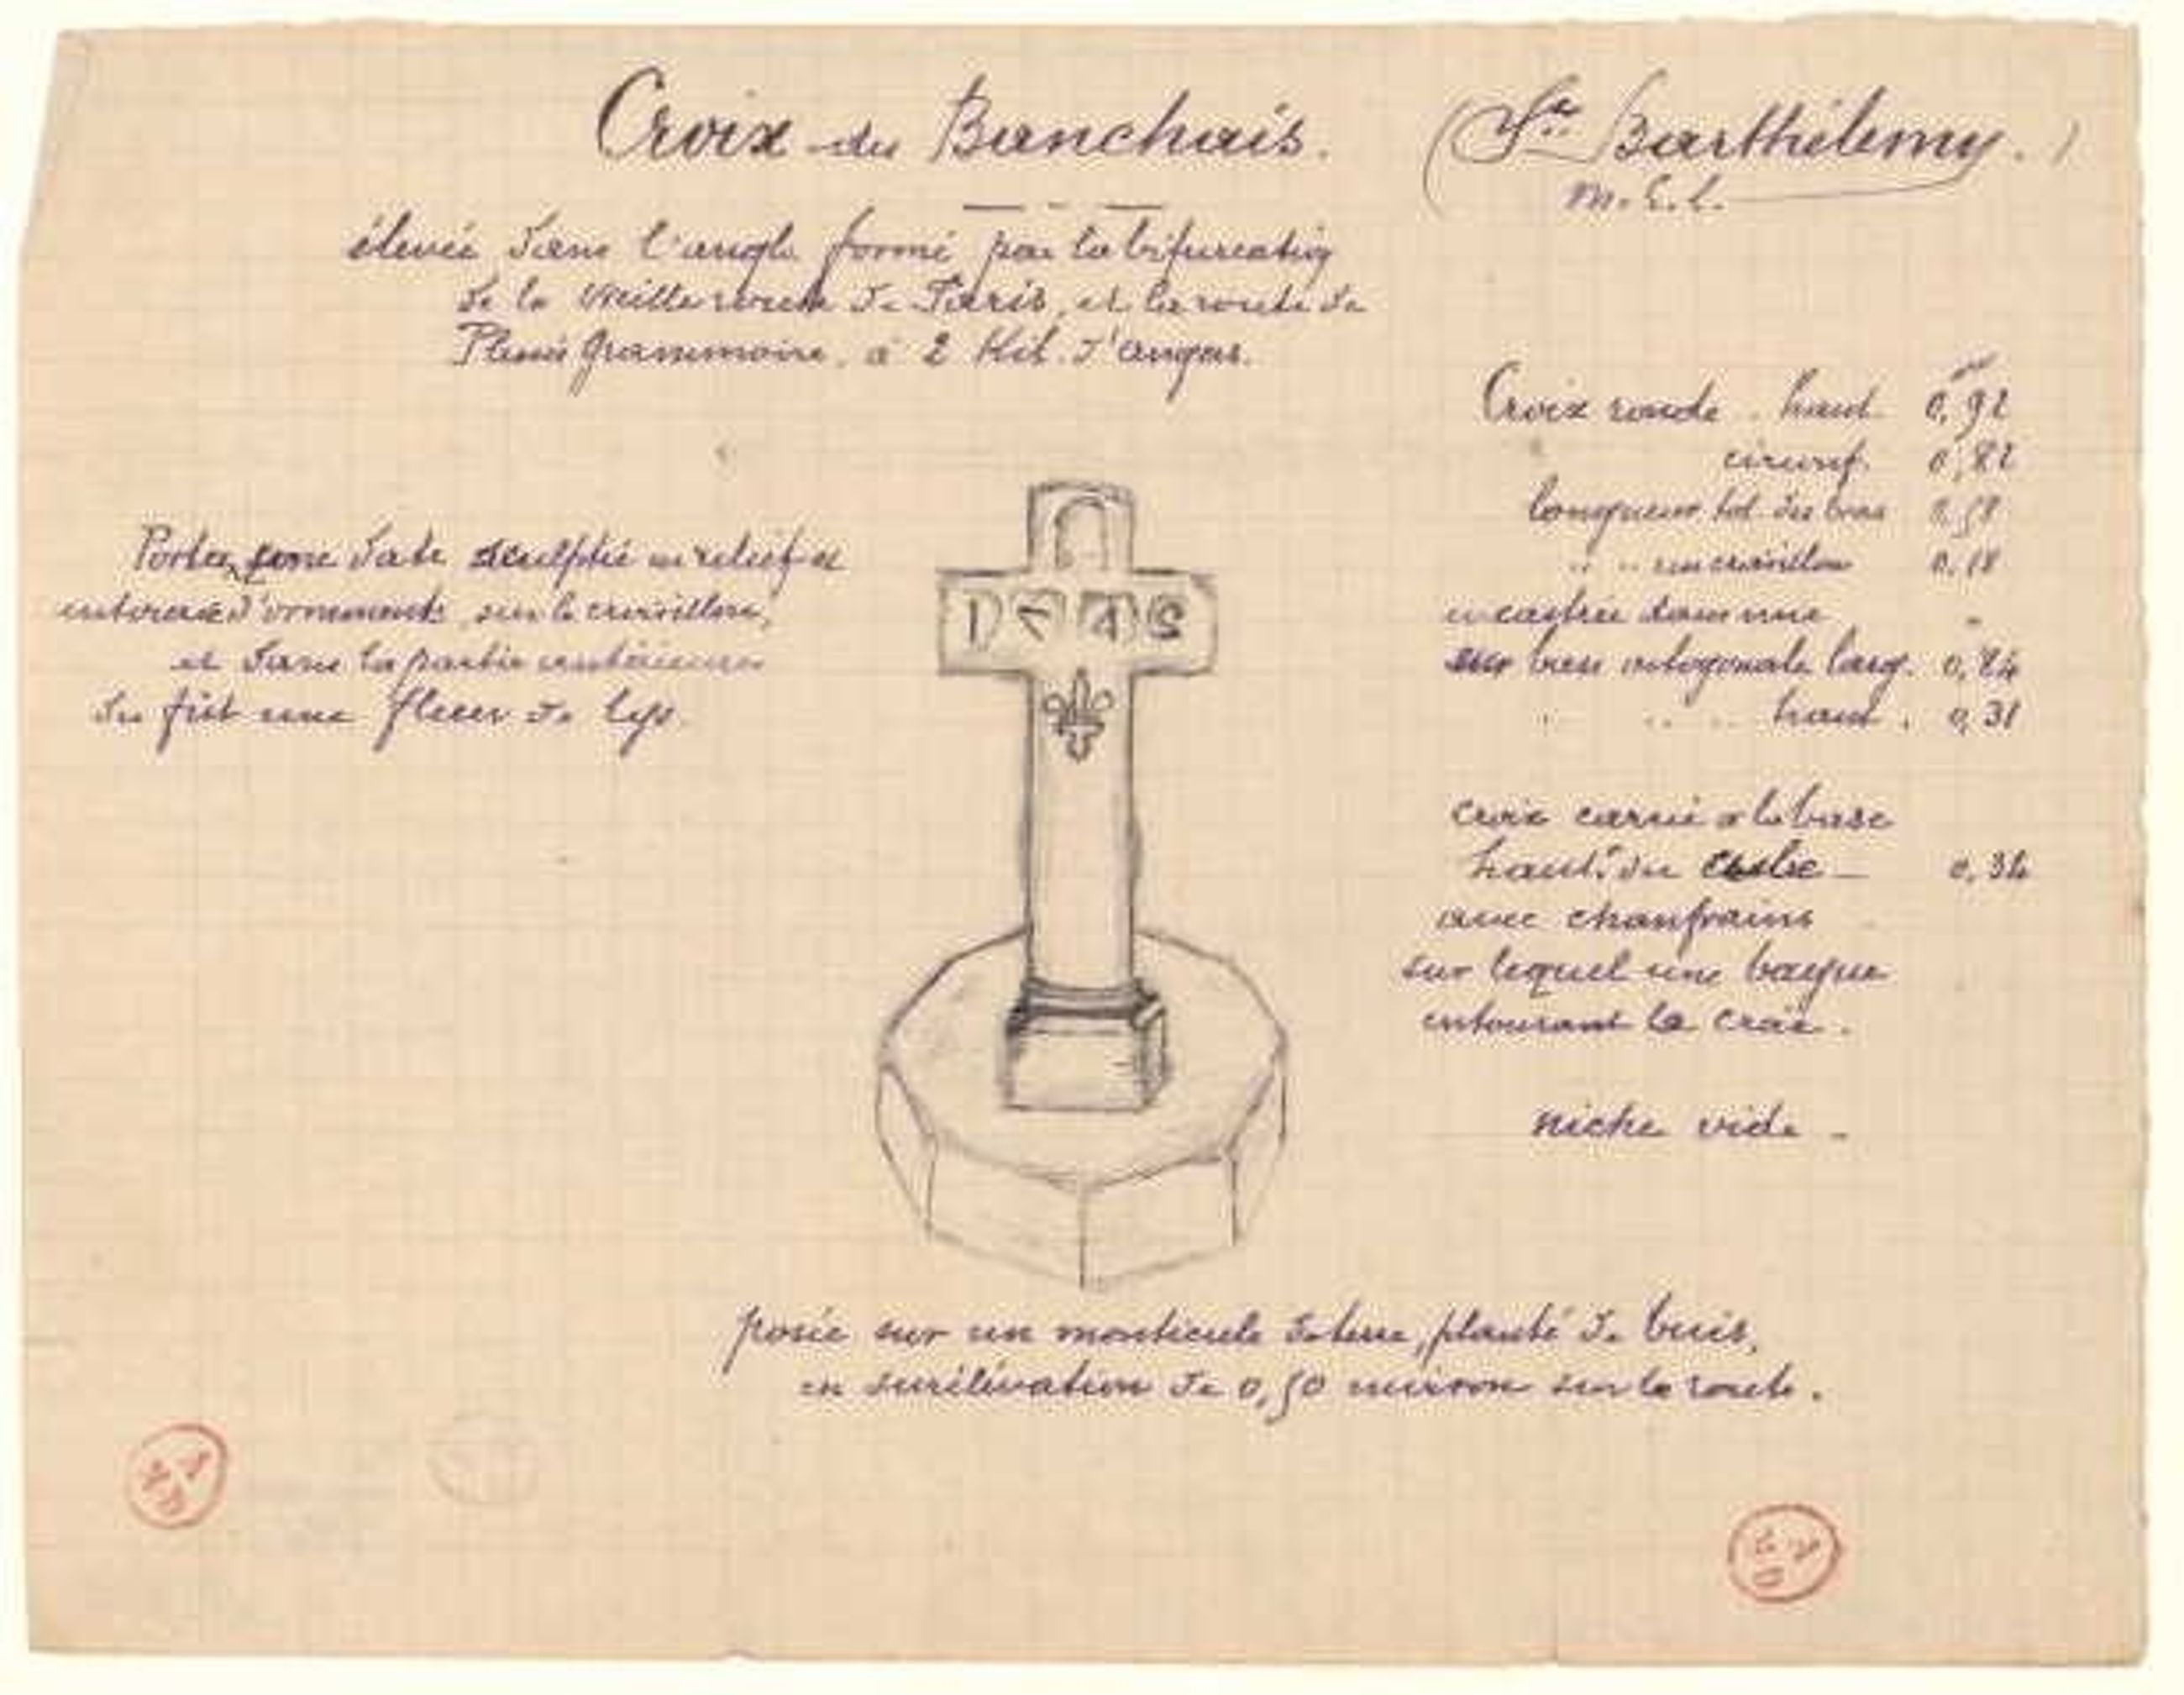 Croix des Banchais.
(St Barthélemy.)
M. & L.
élevée dans l'angle formé par la bifurcation
de la vieille route de Paris, et la route de
Plessis Grammoire, à 2 Kil. d'Angers.
Croix ronde. haut. 0,92
circonf. 0,82
longueur tot. des bras 0,58
" " un croisillon 0,18
encastrée dans une
base octogonale larg. 0,84
" " " haut. 0,31
Portée, une date sculptée en relief et
entourée d'ornements sur le croisillon,
et dans la partie antérieure
du fût une fleur de lys.
1745
croix carrée à la base
hautr du cube — 0,34
avec chanfrains
sur lequel une bague
entourant la croix.
niche vide —
posée sur un monticule de terre, planté de buis,
en surélévation de 0,50 environ sur la route.